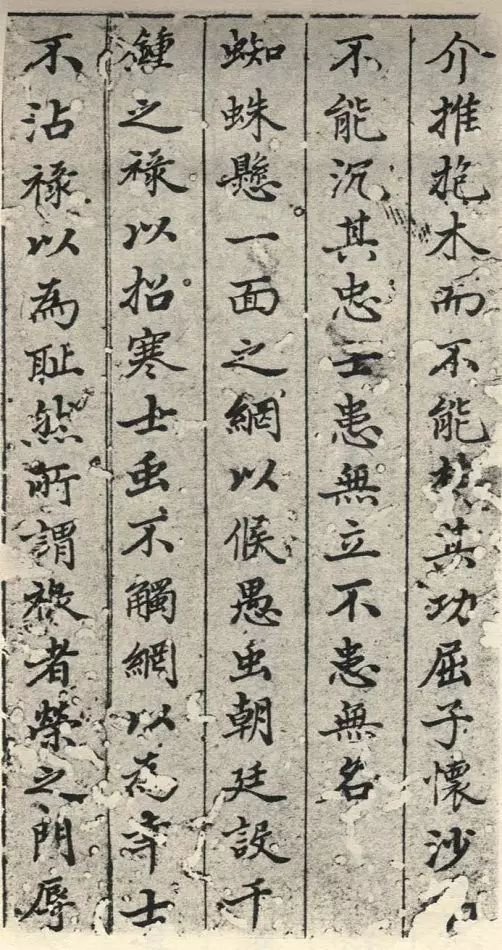 介推抱木而不能㧞其功屈子懷沙而
不能沉其忠士患無立不患無名
蜘蛛懸一面之網以候愚虫朝廷設千
鍾之祿以招寒士虫不觸網以為幸士
不沾祿以為耻然所謂祿者榮之門辱